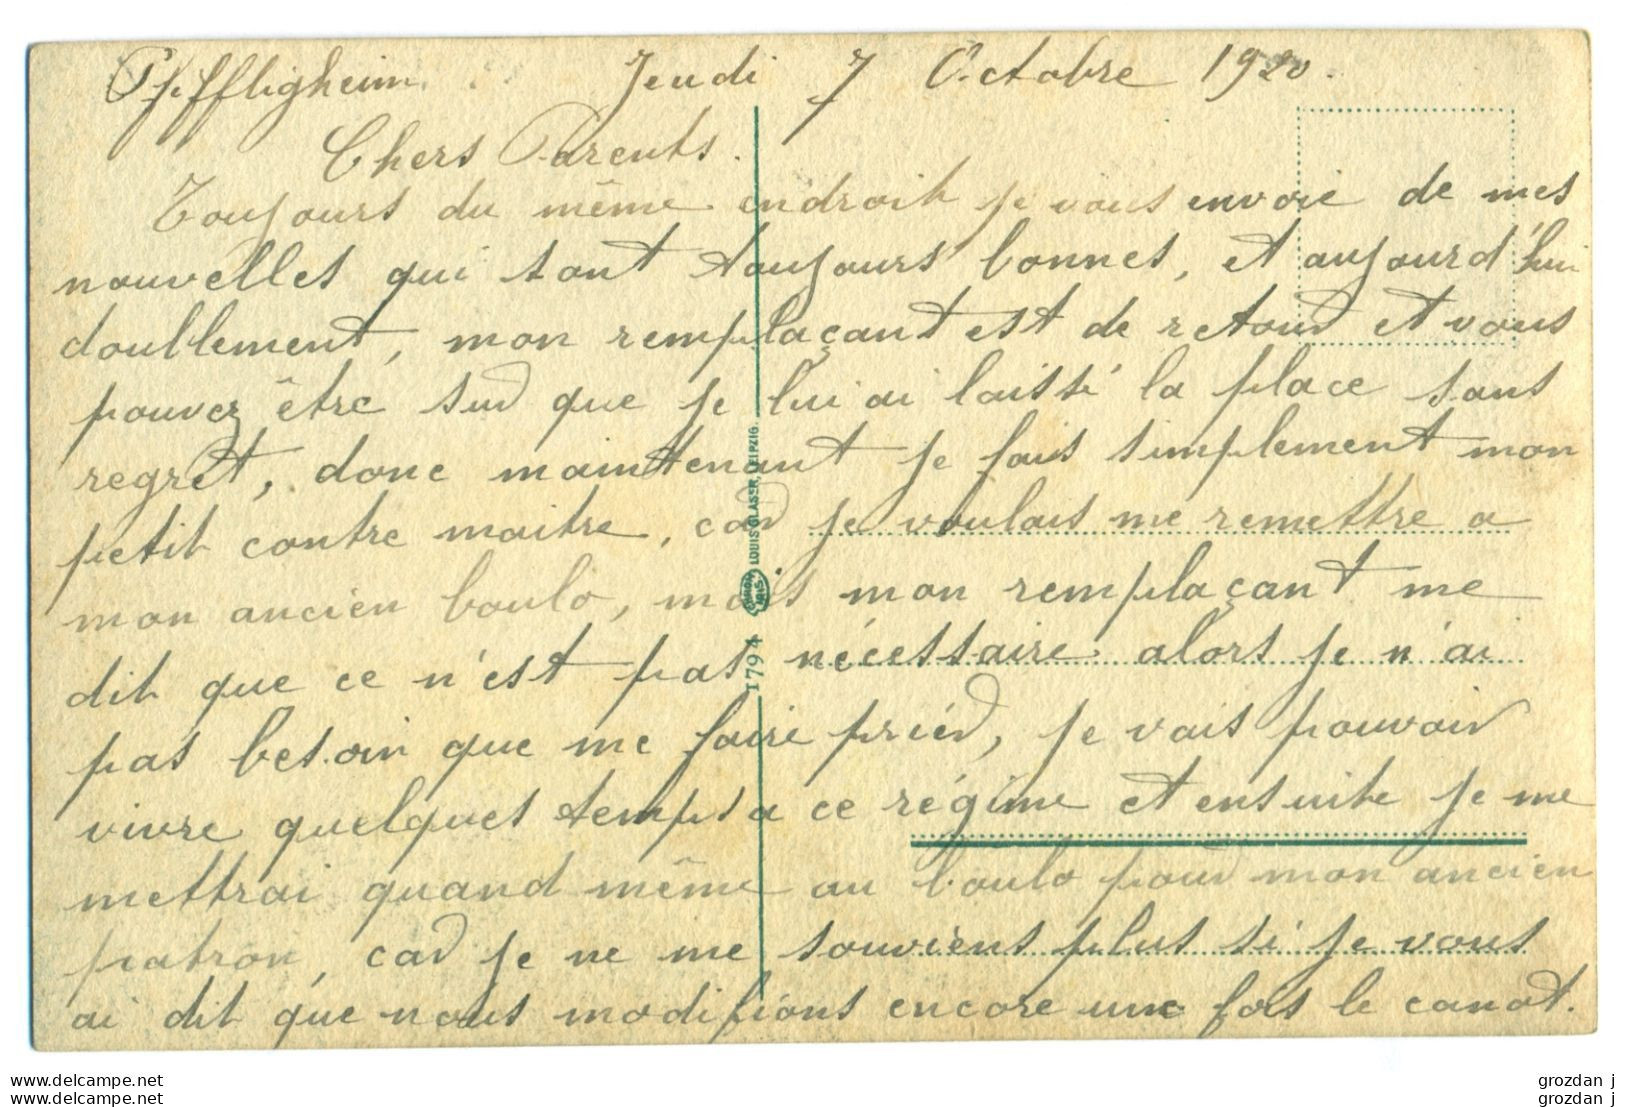 Pfiffligheim. Jeudi 7 Octobre 1920.
Chers Parents.
Toujours du même endroit je vous envoie de mes
nouvelles qui sont toujours bonnes, et aujourd'hui
doublement, mon remplaçant est de retour et vous
pouvez être sur que je lui ai laissé la place sans
regret, donc maintenant je fais simplement mon
petit contre maitre, car je voulais me remettre a
mon ancien boulo, mais mon remplaçant me
dit que ce n'est pas nécessaire alors je n'ai
pas besoin que me faire prier, je vais pouvoir
vivre quelques temps a ce régime et ensuite je me
mettrai quand même au boulo pour mon ancien
patron, car je ne me souviens plus si je vous
ai dit que nous modifions encore une fois le canot.
1794 LOUIS GLASER, LEIPZIG.
delcampe.net
delcampe.net
grozdan j
grozdan j